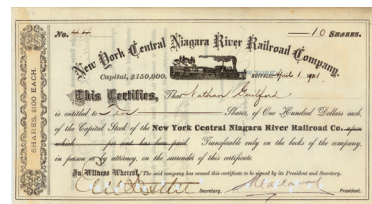 No. 44 — 10 SHARES.
New York Central Niagara River Railroad Company.
Capital, $150,000. BUFFALO, April 1, 1901.
This Certifies, That Nathan Guilford
is entitled to Ten Shares, of One Hundred Dollars each,
of the Capital Stock of the New York Central Niagara River Railroad Co. upon
which per cent has been paid Transferable only on the books of the company,
in person or by attorney, on the surrender of this certificate.
In Witness Whereof, The said company has caused this certificate to be signed by its President and Secretary.
Secretary. President.
SHARES, $100 EACH.